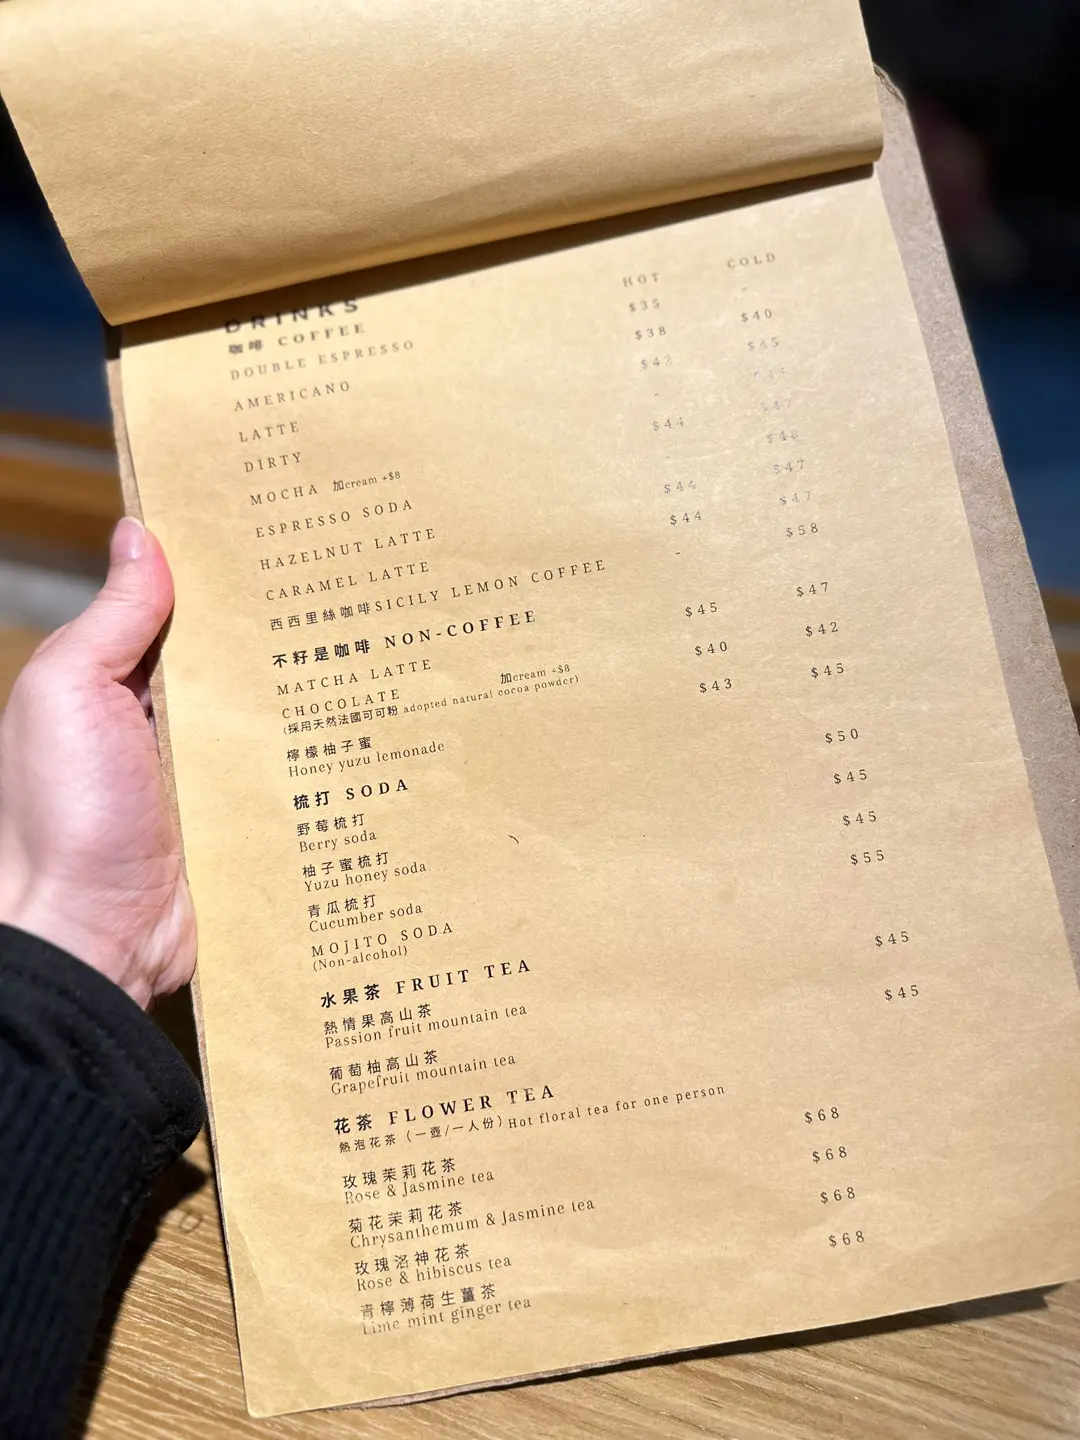 DRINKS
HOT COLD
咖啡 COFFEE
DOUBLE ESPRESSO $35 -
AMERICANO $38 $40
LATTE $42 $45
DIRTY -
MOCHA 加cream +$8 $44 $47
ESPRESSO SODA - $48
HAZELNUT LATTE $44 $47
CARAMEL LATTE $44 $47
西西里絲咖啡SICILY LEMON COFFEE - $58
不籽是咖啡 NON-COFFEE
MATCHA LATTE $45 $47
CHOCOLATE 加cream +$8 $40 $42
(採用天然法國可可粉 adopted natural cocoa powder)
檸檬柚子蜜 $43 $45
Honey yuzu lemonade
梳打 SODA
野莓梳打 $50
Berry soda
柚子蜜梳打 $45
Yuzu honey soda
青瓜梳打 $45
Cucumber soda
MOJITO SODA $55
(Non-alcohol)
水果茶 FRUIT TEA
熱情果高山茶 $45
Passion fruit mountain tea
葡萄柚高山茶 $45
Grapefruit mountain tea
花茶 FLOWER TEA
熱泡花茶（一壺/一人份）Hot floral tea for one person
玫瑰茉莉花茶 $68
Rose & Jasmine tea
菊花茉莉花茶 $68
Chrysanthemum & Jasmine tea
玫瑰洛神花茶 $68
Rose & hibiscus tea
青檸薄荷生薑茶 $68
Lime mint ginger tea